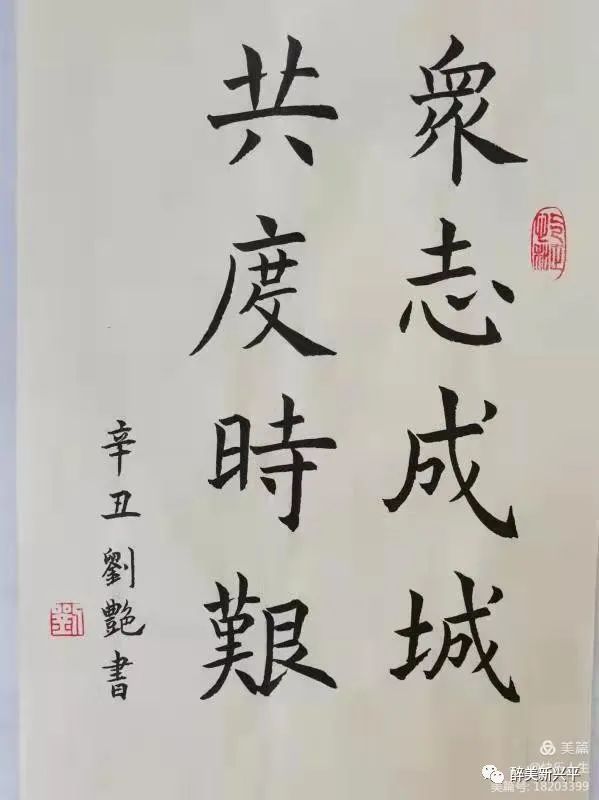 眾志成城
共度時艱
辛丑劉艷書
劉
美篇
@快乐人生
醉美新兴平
美篇号: 18203399